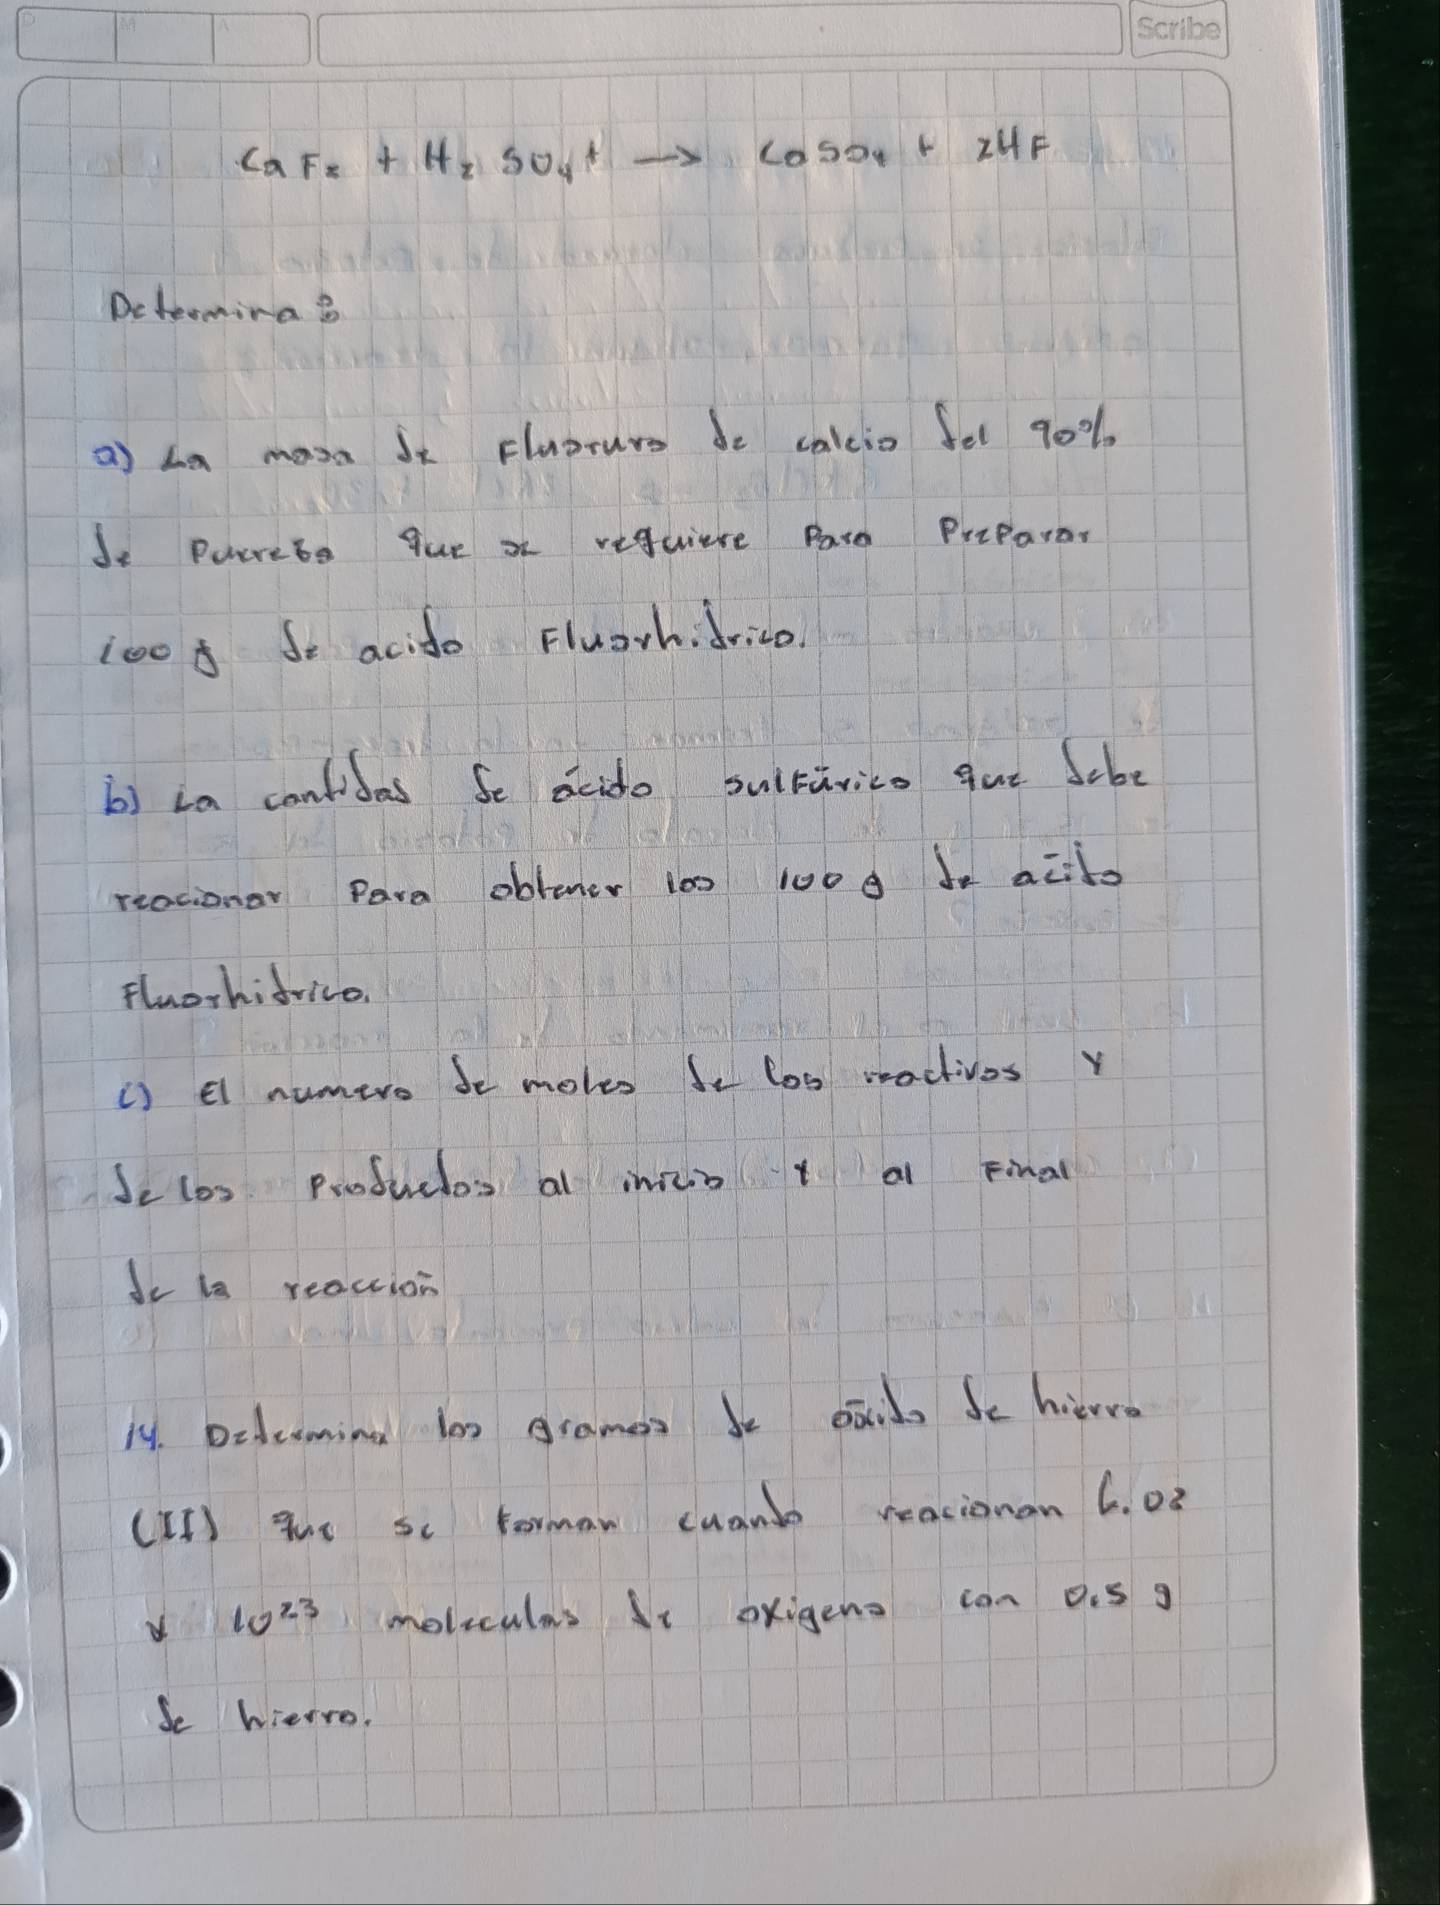 Scribe
CaF₂ + H₂SO₄+ → CaSO₄ + 2HF
Determina:
a) La masa de Fluoruro de calcio del 90%
de Purreza que se requiere Para Preparar
100 g de acido Fluorhidrico.
b) La cantidad de ácido sulfúrico que debe
reacionar Para obtener los 100 g de acido
Fluorhidrico.
c) El numero de moles de los reactivos y
de los Productos al inicio y al Final
de la reacción
14. Determina los gramos de óxido de hierro
(II) que se forman cuando reacionan 6.02
x 10²³ moleculas de oxigeno con 0.5 g
de hierro.